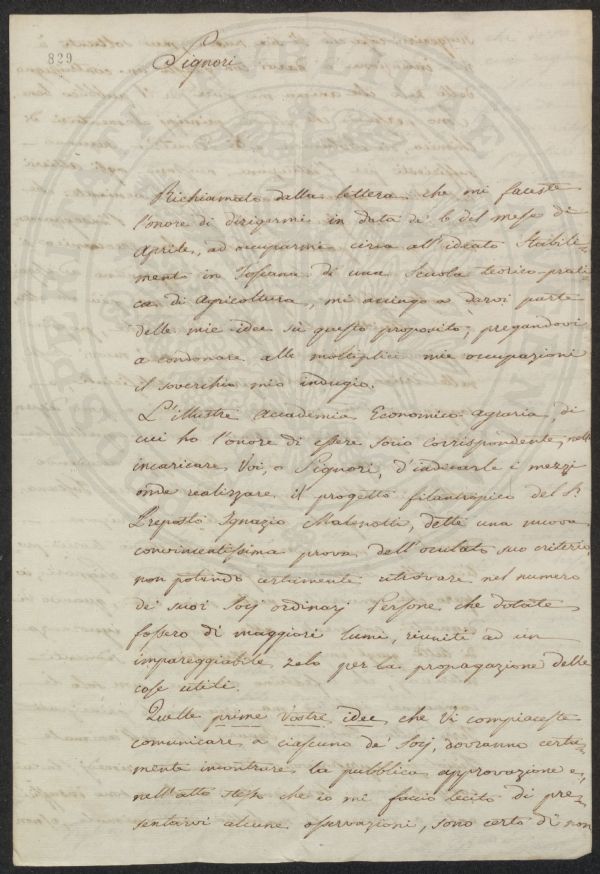 829
Signori
Richiamato dalla lettera, che mi faceste
l'onore di dirigermi in data de' 6 del mese di
Aprile, ad occuparmi circa all'ideato Stabili-
mento in Toscana di una Scuola teorico-prati
ca di Agricoltura, mi accingo a darvi parte
delle mie idee su questo proposito; pregandovi
a condonare alle moltiplici mie occupazioni
il soverchio mio indugio.
L'illustre Accademia Economico-Agraria, di
cui ho l'onore di essere socio corrispondente, nell'
incaricare Voi, o Signori, d'indicarle i mezzi
onde realizzare il progetto filantropico del Sr.
Preposto Ignazio Malenotti, dette una nuova
convincentissima prova dell'oculato suo criterio,
non potendo certamente ritrovare nel numero
de' suoi Socj ordinarj Persone che dotate
fossero di maggiori lumi, riuniti ad un
impareggiabile zelo per la propagazione delle
cose utili.
Quelle prime Vostre idee che Vi compiaceste
comunicare a ciascuno de' Socj, dovranno certa-
mente incontrare la pubblica approvazione e,
nell'atto stesso che io mi faccio lecito di pre-
sentarvi alcune osservazioni, sono certo di non